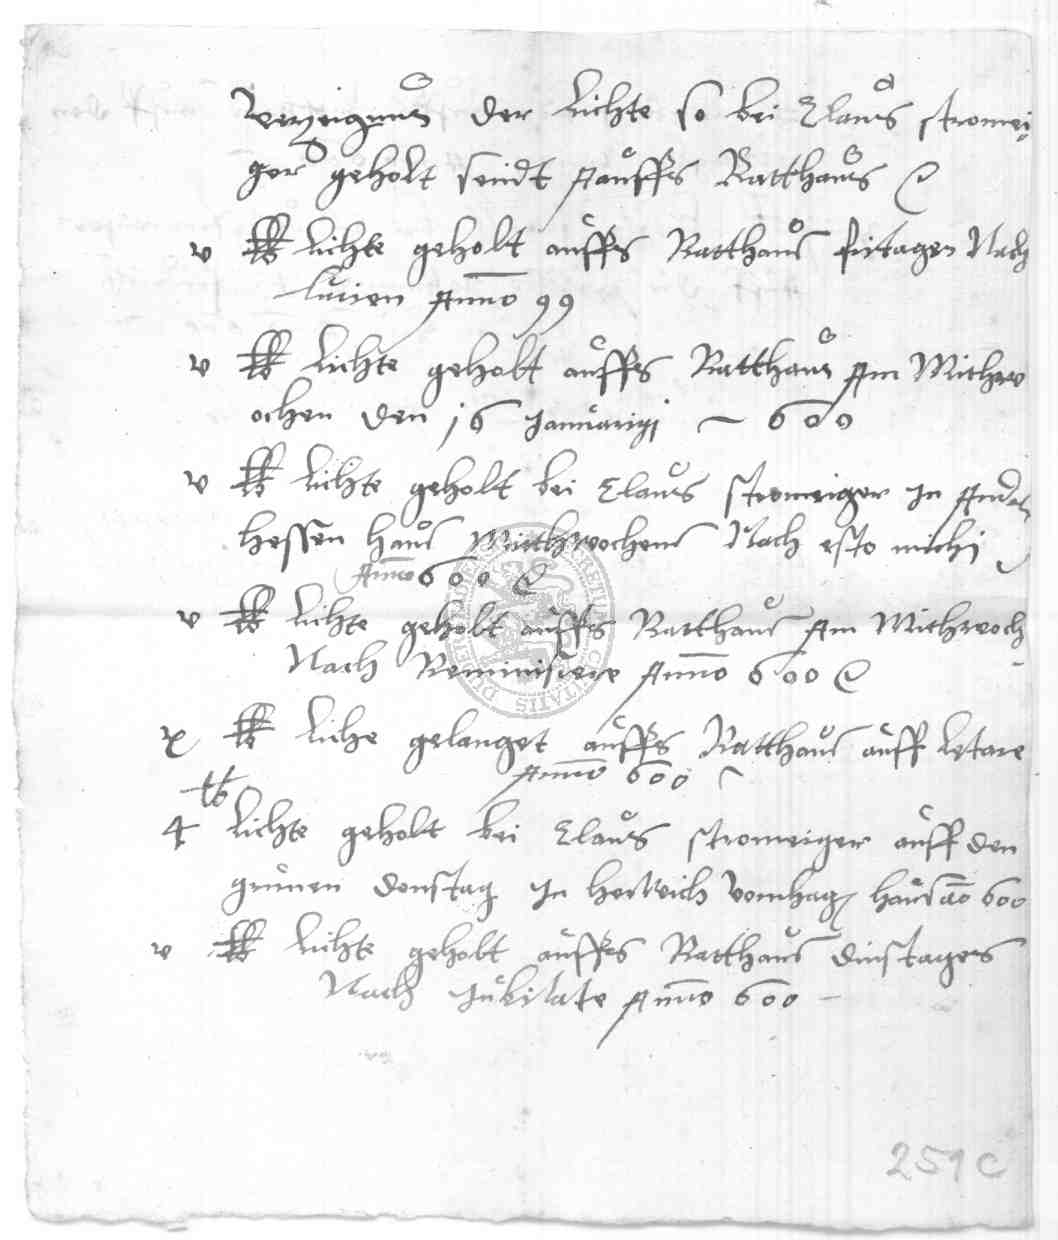 Verzeignus der lichte so bei Claus stromei
ger geholt seindt auffs Ratthaus
v ℔ lichte geholt auffs Ratthaus fritagen Nach
lucien Anno 99
v ℔ lichte geholt auffs Ratthaus Am Mithw
ochen den 16 Januarigi 600
v ℔ lichte geholt bei Claus stromeiger in
hessen haus Mitthwochens Nach esto michi
Anno 600
v ℔ lichte geholt auffs Ratthaus Am Mithwoch
Nach Reminiscere Anno 600
x ℔ lichte gelanget auffs Ratthaus auff letare
Anno 600
℔
4 lichte geholt bei Claus stromeiger auff den
grunen donstag in herwich vomhag haus ao 600
v ℔ lichte geholt auffs Ratthaus dinstages
Nach Jubilate Anno 600
251 c